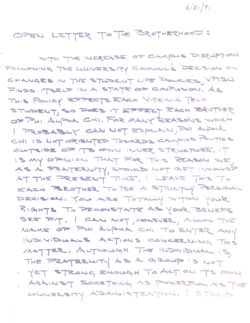 6/21/71
OPEN LETTER TO THE BROTHERHOOD:
WITH THE INCREASE OF CAMPUS DISRUPTIONS
FOLLOWING THE UNIVERSITY COUNCILS DECISION ON
CHANGES IN THE STUDENT LIFE POLICIES, VPISU
FINDS ITSELF IN A STATE OF CONFUSION. AS
THIS POLICY EFFECTS EACH VIRGINIA TECH
STUDENT, SO DOES IT EFFECT EACH BROTHER
OF PHI ALPHA CHI. FOR MANY REASONS WHICH
I PROBABLY CAN NOT EXPLAIN, PHI ALPHA
CHI IS NOT ORIENTED TOWARDS CAMPUS POLITICS
OUTSIDE OF ITS OWN INNER STRUCTURE. IT
IS MY OPINION THAT FOR THIS REASON WE
AS A FRATERNITY, SHOULD NOT GET INVOLVED
AT THE PRESENT TIME. I LEAVE THIS TO
EACH BROTHER TO BE A STRICTLY PERSONAL
DECISION. YOU ARE TOTALLY WITHIN YOUR
RIGHTS TO DEMONSTRATE AS YOUR BELIEFS
SEE FIT. I CAN NOT, HOWEVER, ALLOW THE
NAME OF PHI ALPHA CHI TO ENTER ANY
INDIVIDUALS ACTIONS CONCERNING THIS
MATTER. ALTHOUGH THE INDIVIDUAL IS,
THE FRATERNITY AS A GROUP IS NOT
YET STRONG ENOUGH TO ACT ON ITS OWN
AGAINST SOMETHING AS POWERFUL AS THE
UNIVERSITY ADMINISTRATION. I STAND